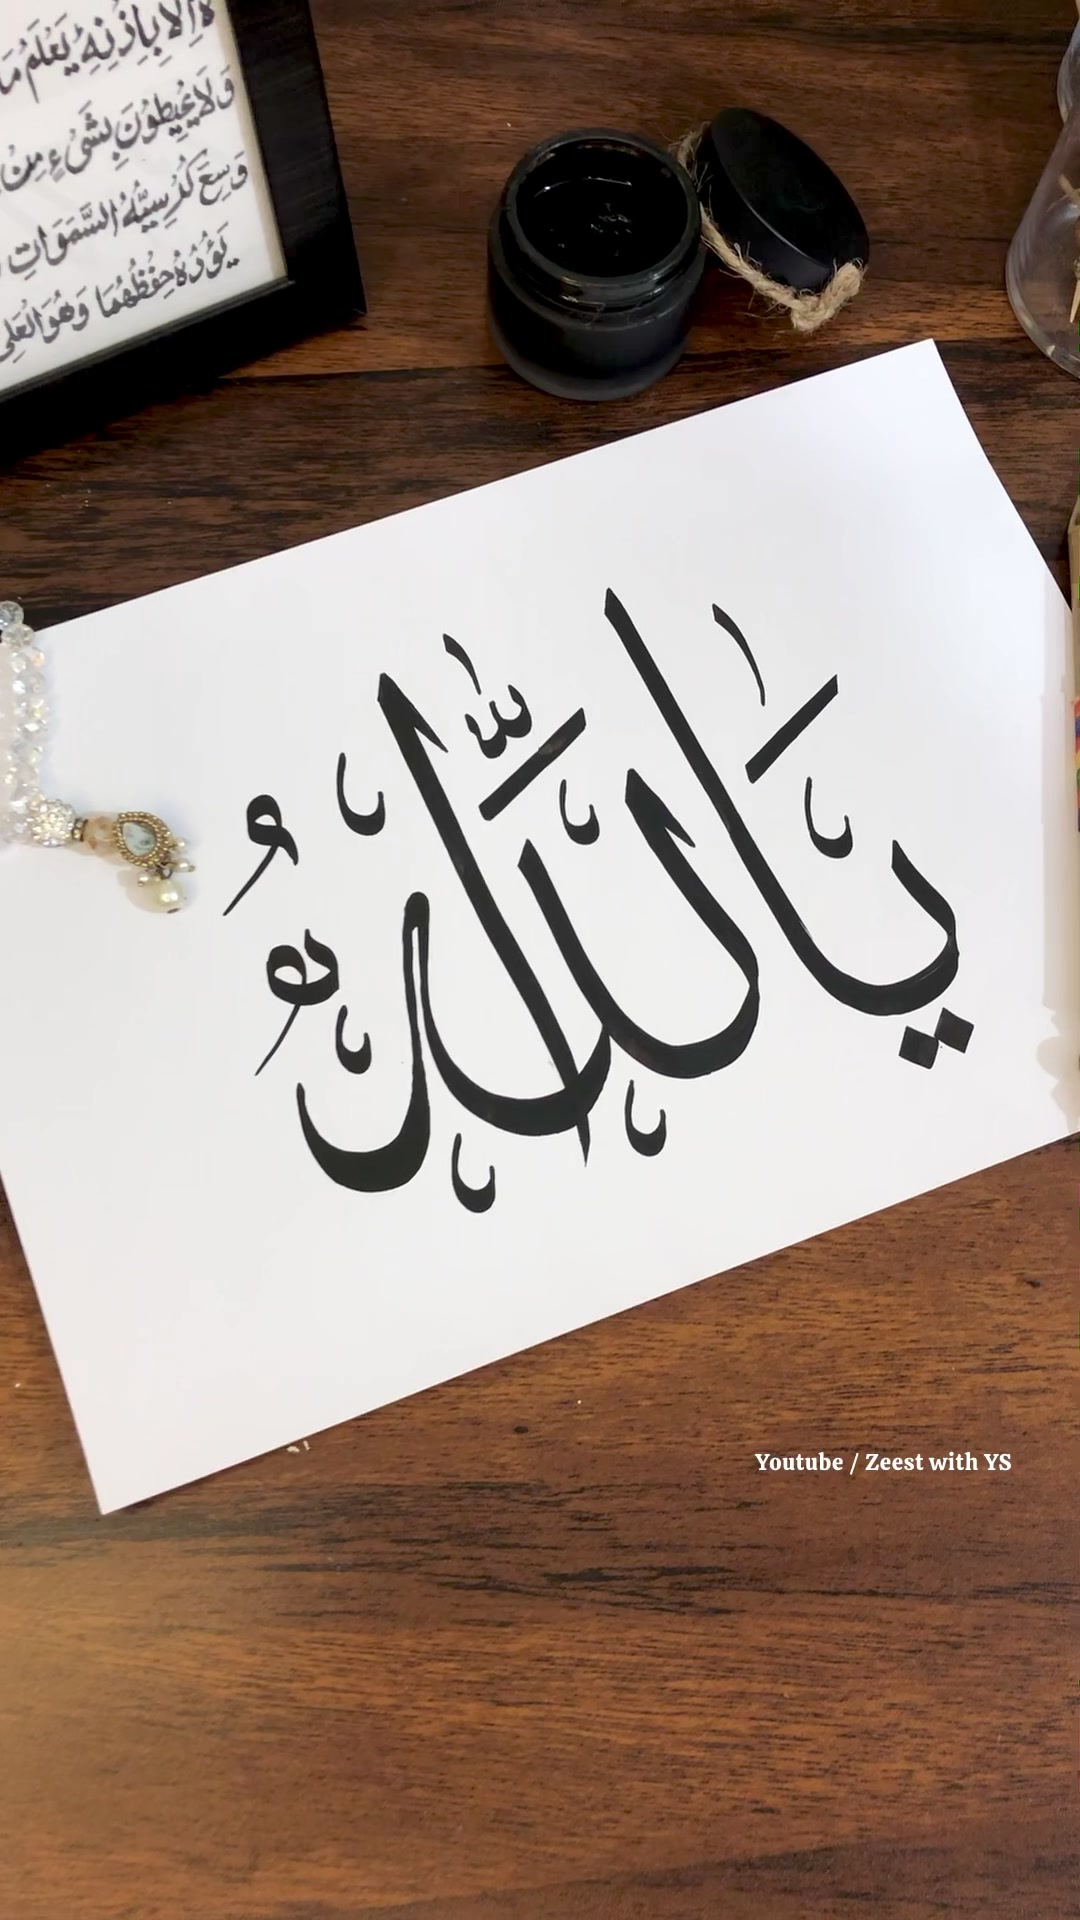 اِلَّا بِاِذْنِهٖ يَعْلَمُ مَا
وَلَا يُحِيْطُوْنَ بِشَىْءٍ مِنْ
وَسِعَ كُرْسِيُّهُ السَّمَوَاتِ
يَؤُدُهٗ حِفْظُهُمَا وَهُوَ الْعَلِى
يَا اللّٰهُ
Youtube / Zeest with YS